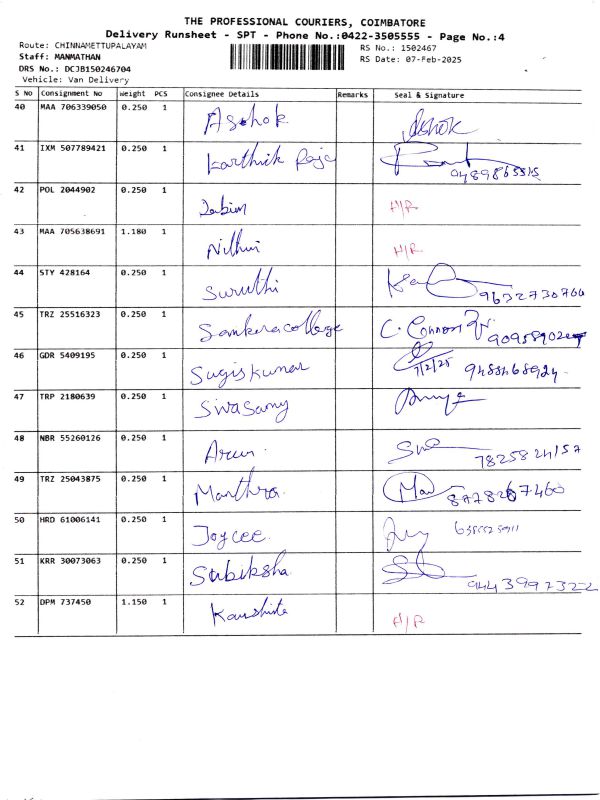 THE PROFESSIONAL COURIERS, COIMBATORE
Delivery Runsheet - SPT - Phone No.:0422-3505555 - Page No.:4
Route: CHINNAMETTUPALAYAM
Staff: MANMATHAN
DRS No.: DCJB150246704
Vehicle: Van Delivery
RS No.: 1502467
RS Date: 07-Feb-2025
S No Consignment No Weight PCS Consignee Details Remarks Seal & Signature
40 MAA 706339050 0.250 1 Ashok Ashok
41 IXM 507789421 0.250 1 Karthick Raja 9489865515
42 POL 2044902 0.250 1 H/R
43 MAA 705638691 1.180 1 Nithin H/R
44 STY 428164 0.250 1 Suruthi 9632730760
45 TRZ 25516323 0.250 1 Sankara college
46 GDR 5409195 0.250 1 Sugiskumar 7/2/25
47 TRP 2180639 0.250 1 Sivasamy
48 NBR 55260126 0.250 1 Arun 7825824157
49 TRZ 25043875 0.250 1 Manthra
50 HRD 61006141 0.250 1 Joycee
51 KRR 30073063 0.250 1 Subiksha 9443997322
52 DPM 737450 1.150 1 H/R